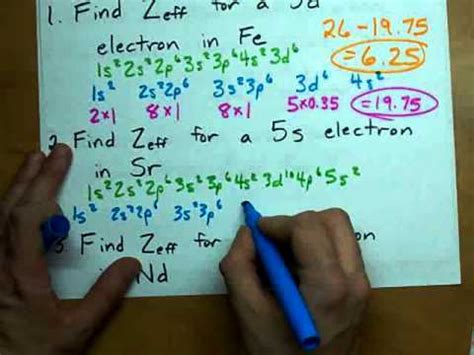 1. Find Zeff for a 3d
electron in Fe
26 - 19.75
= 6.25
1s² 2s² 2p⁶ 3s² 3p⁶ 4s² 3d⁶
1s² 2s²2p⁶ 3s²3p⁶ 3d⁶ 4s²
2×1 8×1 8×1 5×0.35 = 19.75
2. Find Zeff for a 5s electron
in Sr
1s² 2s² 2p⁶ 3s² 3p⁶ 4s² 3d¹⁰ 4p⁶ 5s²
1s² 2s²2p⁶ 3s²3p⁶
3. Find Zeff for
Nd